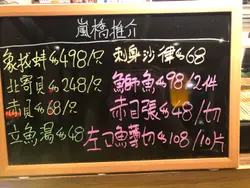 嵐橋推介
象拔蚌$498/只
北寄貝$248/只
赤貝$68/只
立魚湯$48
刺身沙律$68
鰤魚$98/214
赤目張$48/切
左口魚薄切$108/10片